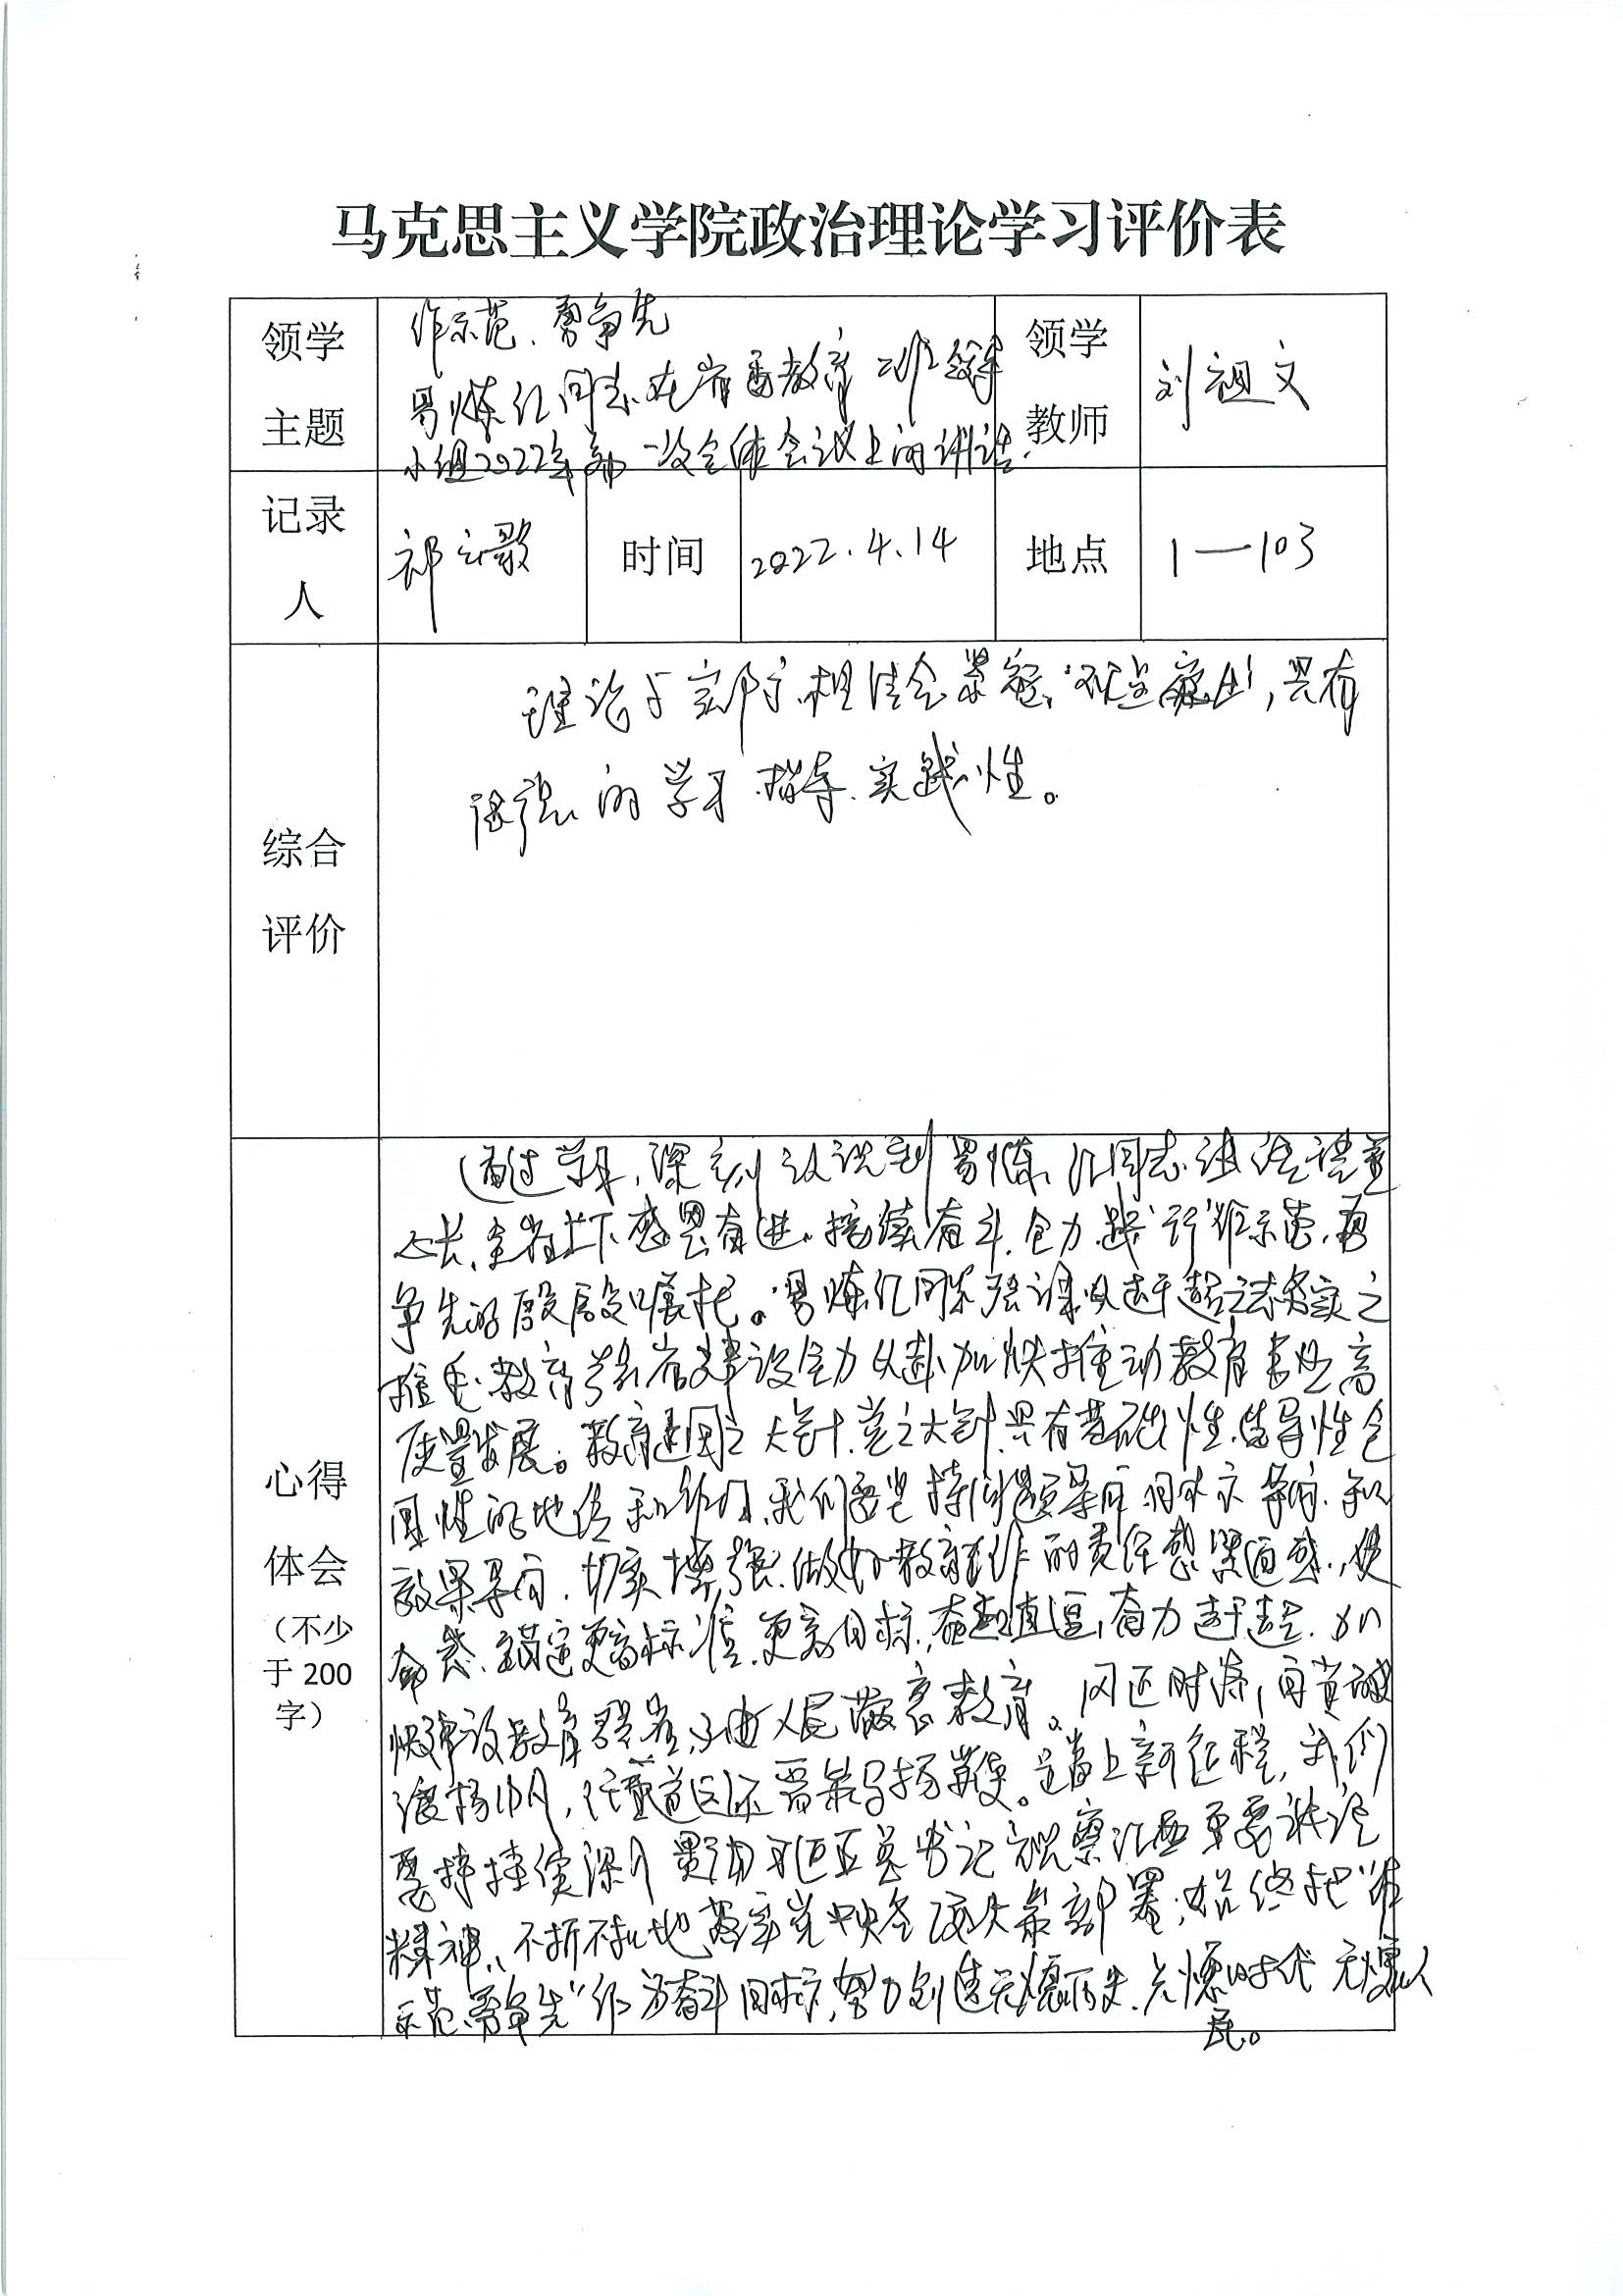 马克思主义学院政治理论学习评价表
领学
主题
作示范、勇争先
易炼红同志在省委教育
小组2022年第一次全体会议上的讲话
领学
教师
刘祖文
记录
人
祁云歌
时间
2022.4.14
地点
1—103
综合
评价
理论与实际相结合紧密,重点突出,具有
很强的学习、指导、实践性。
心得
体会
(不少
于 200
字)
通过学习,深刻认识到易炼红同志
全省上下感恩奋进、接续奋斗、全力践行"作示范、勇
争先"的殷殷嘱托。易炼红同志强调以赶超之志务实之
教育强省建设全力以赴加快推动教育事业高
质量发展。教育是国之大计、党之大计,具有基础性、先导性、全
局性的地位和作用,我们要坚持问题导向、目标导向、和
效果导向,切实增强做好教育工作的责任感紧迫感、使
命感、锚定更高标准、更高目标,奋起直追,奋力赶超,加
快建设教育强省,办好人民满意教育。
任重道远还需策马扬鞭。踏上新征程,我们
要持续深入贯彻习近平总书记视察江西重要讲话
精神,不折不扣地落实党中央各项决策部署,始终把"作
示范、勇争先"作为奋斗目标,努力创造无愧历史、无愧时代、无愧人
民。